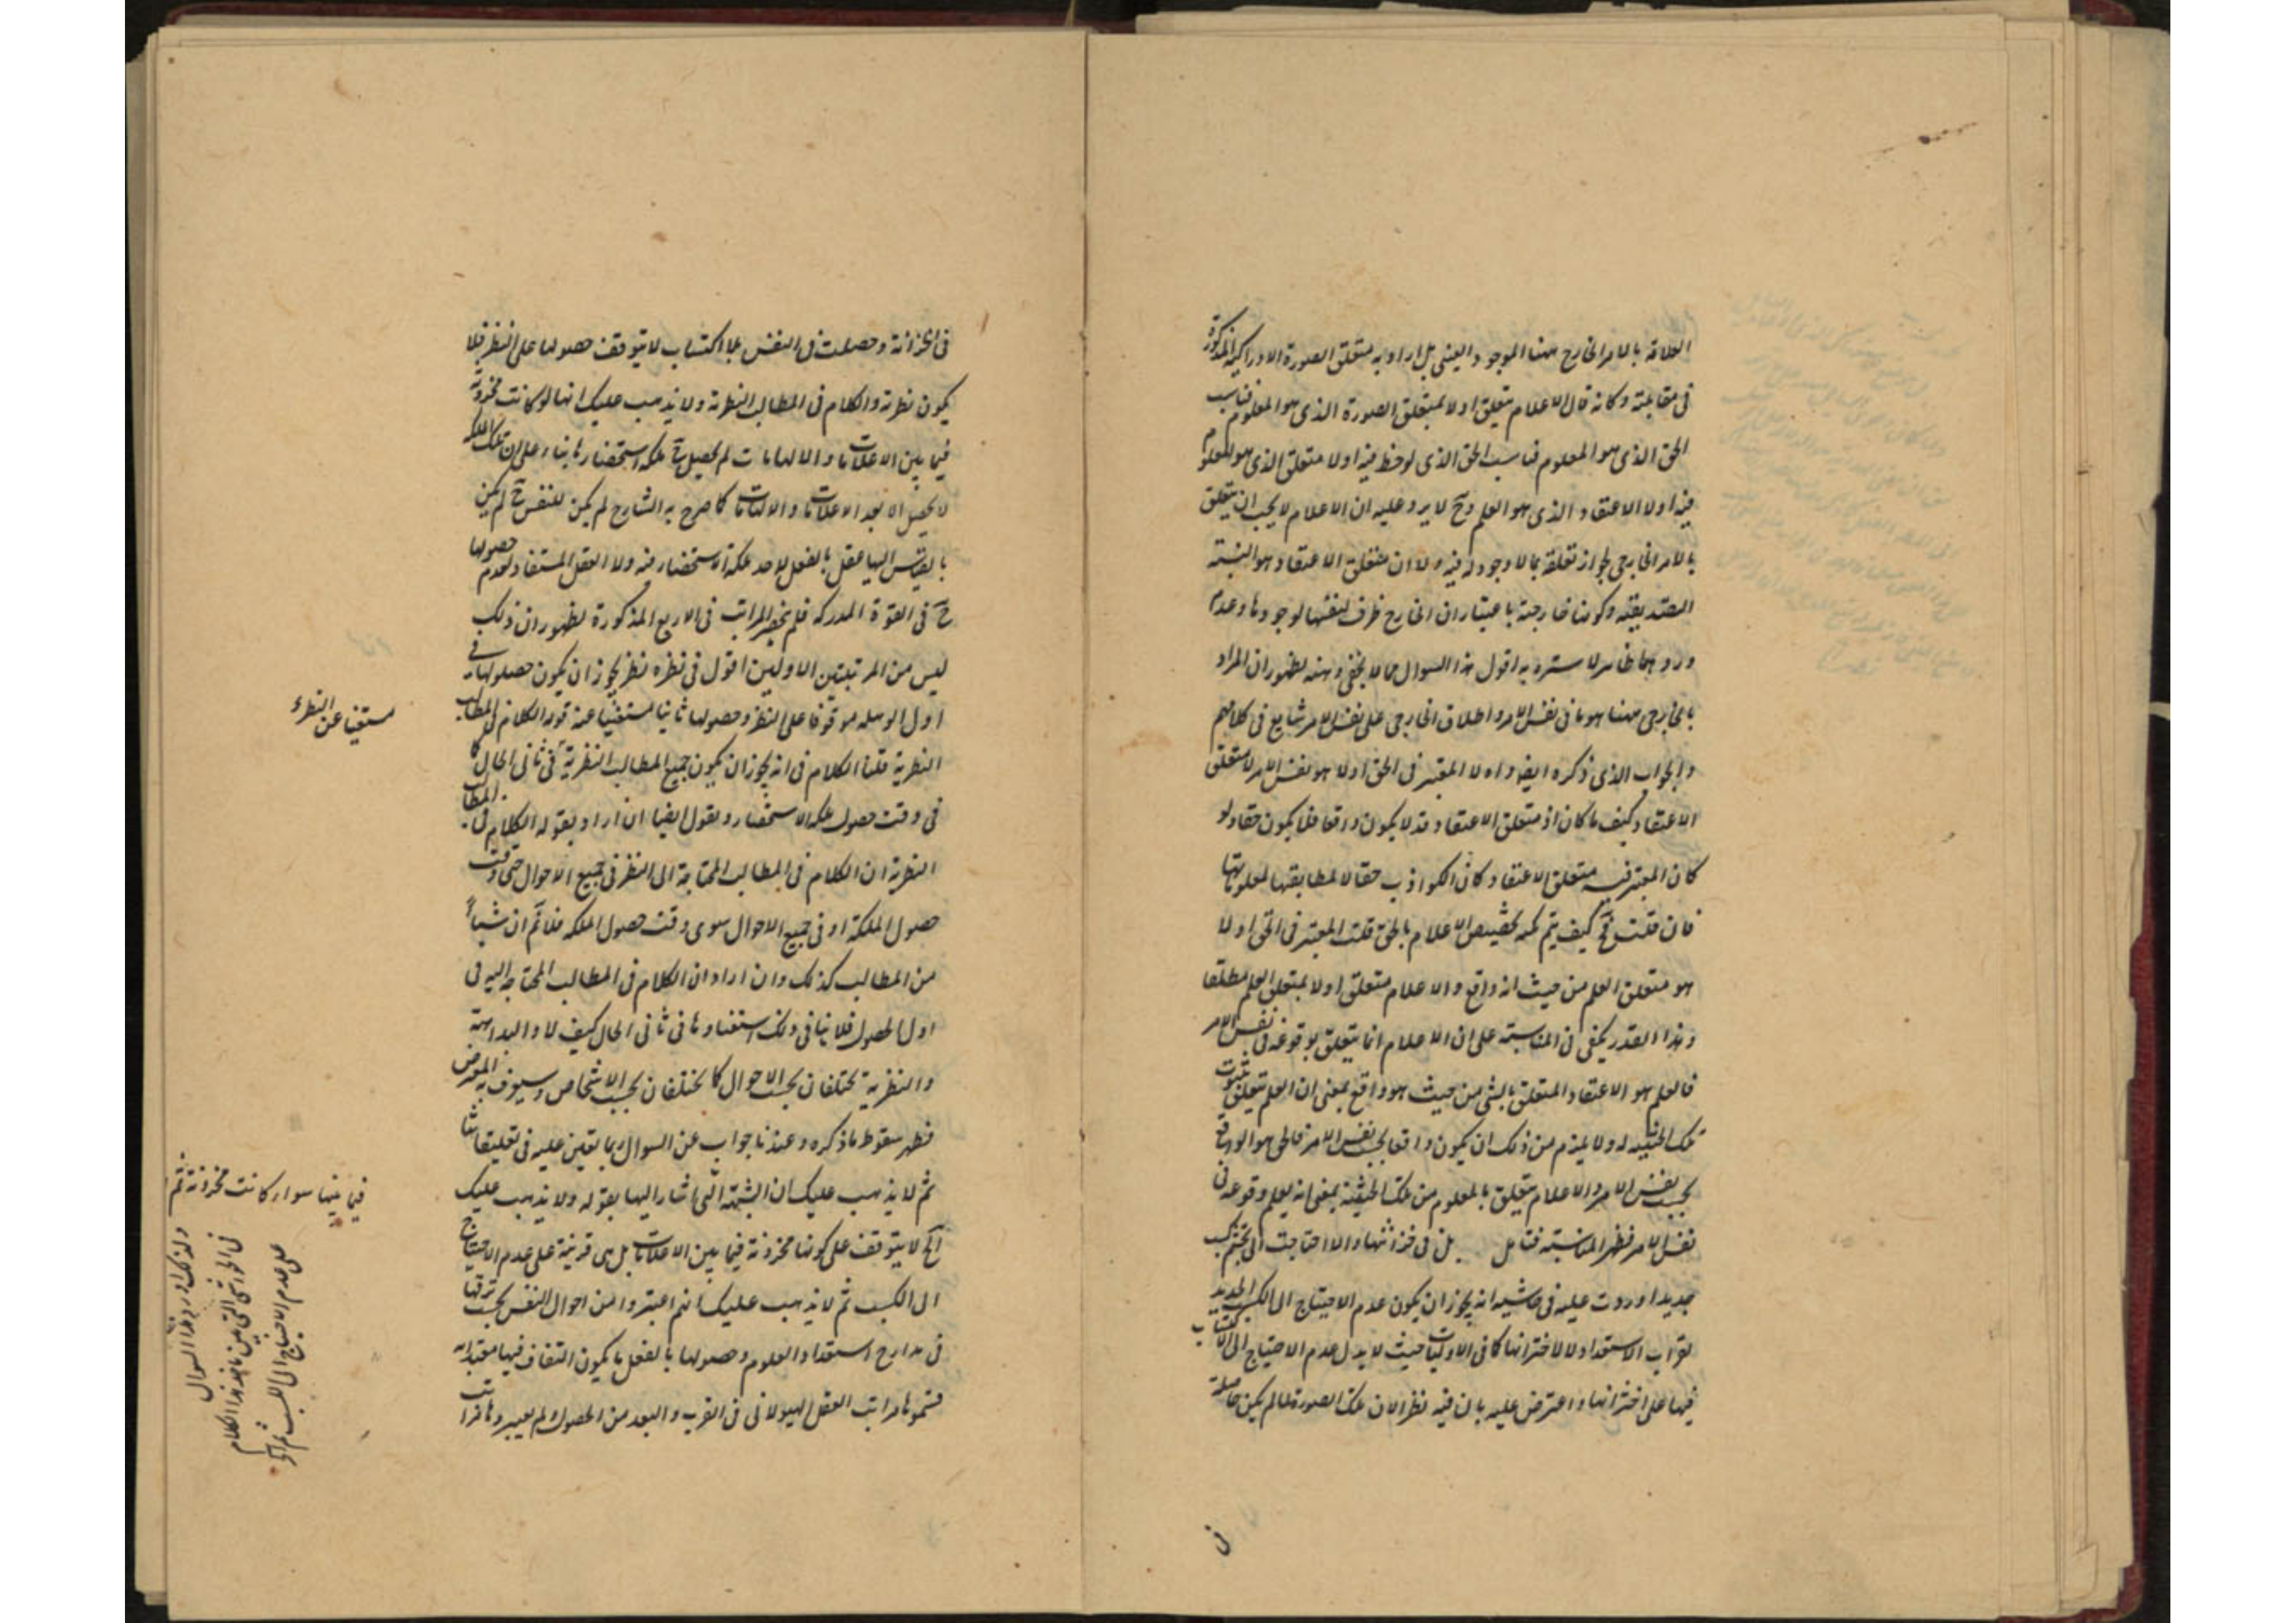 العلاقة بالامر الخارج ههنا الموجود العينى بل اراد به متعلق الصورة الادراكية المذكورة
فى مقابلته وكانه قال الاعلام يتعلق اولا بمتعلق الصورة الذى هو المعلوم فناسب
الحق الذى هو المعلوم فناسب الحق الذى لوحظ فيه اولا متعلق الذى هو المعلوم
فيه اولا الاعتقاد الذى هو العلم وح لا يرد عليه ان الاعلام لا يجب ان يتعلق
بالامر الخارجى لجواز تعلقه بما لا وجود له فيه ولان متعلق الاعتقاد هو النسبة
التصديقية وكونها خارجية باعتبار ان الخارج ظرف لنفسها لا وجودها وعدم
ورودهما ظاهر لا سترة به اقول هذا السوال مما لا يخفى وهنه لظهور ان المراد
بالخارجى ههنا هو ما فى نفس الامر واطلاق الخارجى على نفس الامر شايع فى كلامهم
والجواب الذى ذكره ايضا واه لا المعتبر فى الحق اولا هو نفس الامر لا متعلق
الاعتقاد كيف ما كان اذ متعلق الاعتقاد قد لا يكون واقعا فلا يكون حقا ولو
كان المعتبر فيه متعلق الاعتقاد كان الكواذب حقا لمطابقتها لمعلوماتها
فان قلت فح كيف يتم نكتة تخصيص الاعلام بالحق قلت المعتبر فى الحق اولا
هو متعلق العلم من حيث انه واقع والاعلام متعلق اولا بمتعلق العلم مطلقا
وهذا القدر يكفى فى المناسبة على ان الاعلام انما يتعلق بوقوعه فى نفس الامر
فالعلم هو الاعتقاد المتعلق بالشى من حيث هو واقع بمعنى ان العلم يتعلق بثبوت
تلك الحيثية له ولا يلزم من ذلك ان يكون واقعا بحسب نفس الامر فالحق هو الواقع
بحسب نفس الامر والاعلام يتعلق بالمعلوم من تلك الحيثية بمعنى انه يعلم وقوعه فى
نفس الامر فظهر المناسبة فتامل بل فى خزانتها والا احتاجت الى تجشم كسب
جديد اوردت عليه فى حاشيته انه يجوز ان يكون عدم الاحتياج الى الكسب الجديد
لقرب الاستعداد لا لاختزانها كما فى الاوليات حيث لا يدل عدم الاحتياج الى الاكتساب
فيها على اختزانها واعترض عليه بان فيه نظر لان تلك الصورة لما لم يكن حاصلة
فى الخزانة وحصلت فى النفس بلا اكتساب لا يتوقف حصولها على النظر فلا
يكون نظرية والكلام فى المطالب النظرية ولا يذهب عليك انها لو كانت مخزونة
فيما بين الاعلامات والالهامات لم يحصل ملكة استحضارها بناء على ان تلك الملكة
لا يحصل الا بعد كما صرح به الشارح لم يكن للنفس ح لم يكن
بالقياس اليها عقل بالفعل لاخذ ملكة الاستحضار فيه ولا العقل المستفاد لعدم حصولها
ح فى القوة المدركة فلم ينحصر المراتب فى الاربع المذكورة لظهور ان ذلك
ليس من المرتبتين الاوليين اقول فى نظره نظر يجوز ان يكون حصولها فى
اول الوهلة موقوفا على النظر وحصولها ثانيا مستغنيا عنه قوله الكلام فى المطالب
النظرية قلنا الكلام فى انه يجوز ان يكون جميع المطالب النظرية فى ثانى الحال كما
فى وقت حصول ملكة الاستحضار ونقول ايضا ان اراد بقوله الكلام فى المطالب
النظرية ان الكلام فى المطالب المحتاجة الى النظر فى جميع الاحوال حتى وقت
حصول الملكة او فى جميع الاحوال سوى وقت حصول الملكة فلا نم ان شيئا
من المطالب كذلك وان اراد ان الكلام فى المطالب المحتاجة اليه فى
اول الحصول فلا ينافى ذلك استغناوها فى ثانى الحال كيف لا والبداهة
والنظرية تختلفان بحسب الاحوال كما تختلفان بحسب الاشخاص وسيعرف به المعترض
فظهر سقوط ما ذكره وعندنا جواب عن السوال ربما يقين عليه فى تعليقاتنا
ثم لا يذهب عليك ان الشبهة التى اشار اليها بقوله ولا يذهب عليك
آه لا يتوقف على كونها مخزونة فيما بين الاعلامات بل هى قرينة على عدم الاحتياج
الى الكسب ثم لا يذهب عليك انهم اعتبروا من احوال النفس بحسب ترقيها
فى مدارج استعداد العلوم وحصولها بالفعل ما يكون التفاوت فيها معتدا به
فسموها مراتب العقل الهيولانى فى القرب والبعد من الحصول لم يعتبروها مراتب
مستغنيا عن النظر
فيما بينها سواء كانت مخزونة ثم
على عدم الاحتياج الى الكسب ثم
فى الحواشى التى هذا الكلام
ولذلك اورد هذا السوال